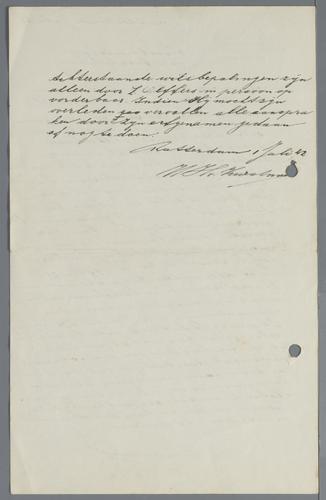 Achterstaande wilsbepalingen zijn
alleen door Z Elffers in persoon op
vorderbaar Indien Hij mocht zijn
overleden zoo vervallen alle aanspra
ken door zijn erfgenamen gedaan
of nog te doen.
Rotterdam 1 Juli 42